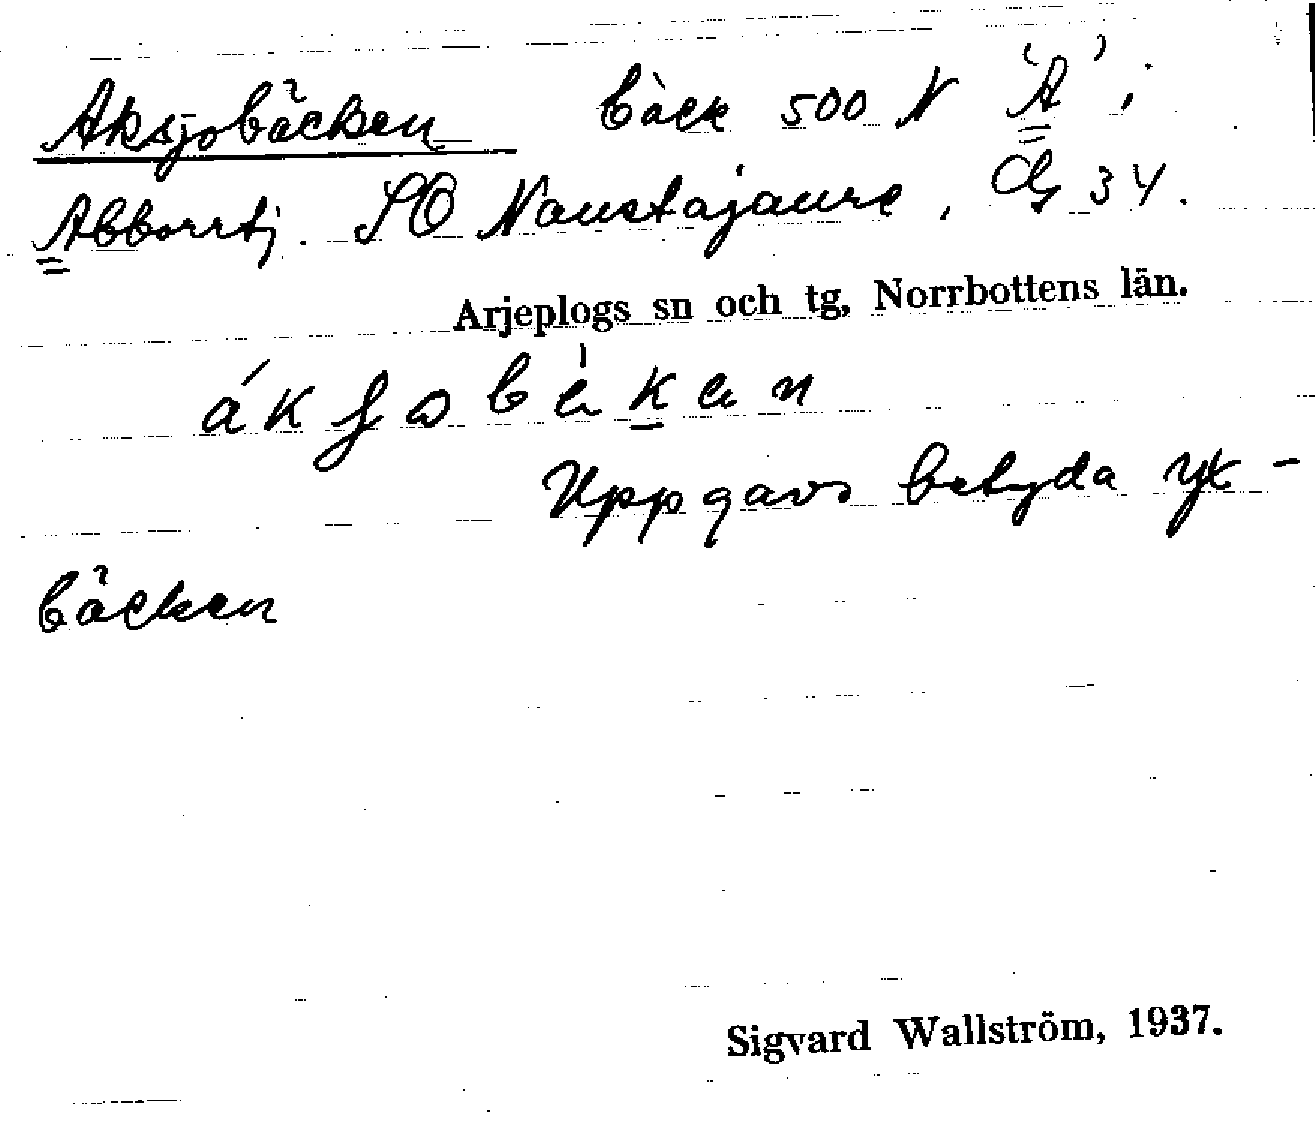 Aksjobäcken bäck 500 N 'A' i
Abborrtj. SO Naustajaure, 34.
Arjeplogs sn och tg, Norrbottens län.
Uppgavs betyda yx-
bäcken
Sigvard Wallström, 1937.